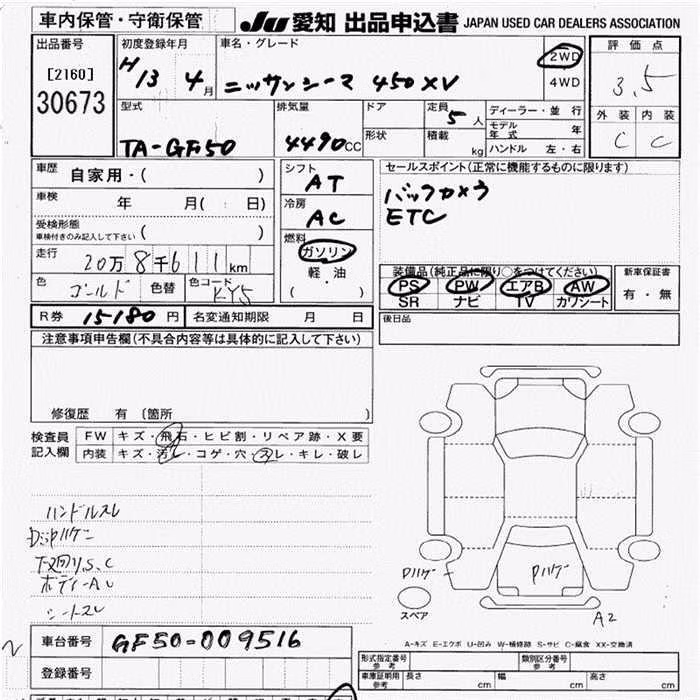 車内保管・守衛保管
JU 愛知 出品申込書 JAPAN USED CAR DEALERS ASSOCIATION
出品番号
[2160]
30673
初度登録年月
H13 4月
車名・グレード
ニッサンシーマ 450XV
2WD
4WD
評価点
3.5
外装 内装
C C
型式
TA-GF50
排気量
4490CC
ドア
形状
定員 5人
積載 kg
ディーラー・並行
モデル年式 年
ハンドル 左・右
車歴 自家用・( )
車検 年 月( 日)
受検形態
車検付きのみ記入して下さい ( )
走行 20万8千611km
色 ゴールド 色替 色コード KY5
シフト
AT
冷房
AC
燃料
ガソリン
軽・油
( )
セールスポイント(正常に機能するものに限ります)
バックカメラ
ETC
装備品(純正品に限り○をつけてください)
PS PW エアB AW
SR ナビ TV カワシート
新車保証書
有・無
R券 15180円 名変通知期限 月 日
後日品
注意事項申告欄(不具合内容等は具体的に記入して下さい)
修復歴 有 〔箇所 〕
検査員記入欄
FW キズ・飛石・ヒビ割・リペア跡・X要
内装 キズ・汚レ・コゲ・穴・スレ・キレ・破レ
ハンドルスレ
DUPハゲ
下回りS.C
ボディーAU
シートスレ
Pハゲ
Pハゲ
スペア
A2
A-キズ E-エクボ U-凹み W-補修跡 S-サビ C-腐食 XX-交換済
車台番号 GF50-009516
登録番号
形式指定番号 参考
類別区分番号 参考
車庫証明用 参考 長さ cm 幅 cm 高さ cm